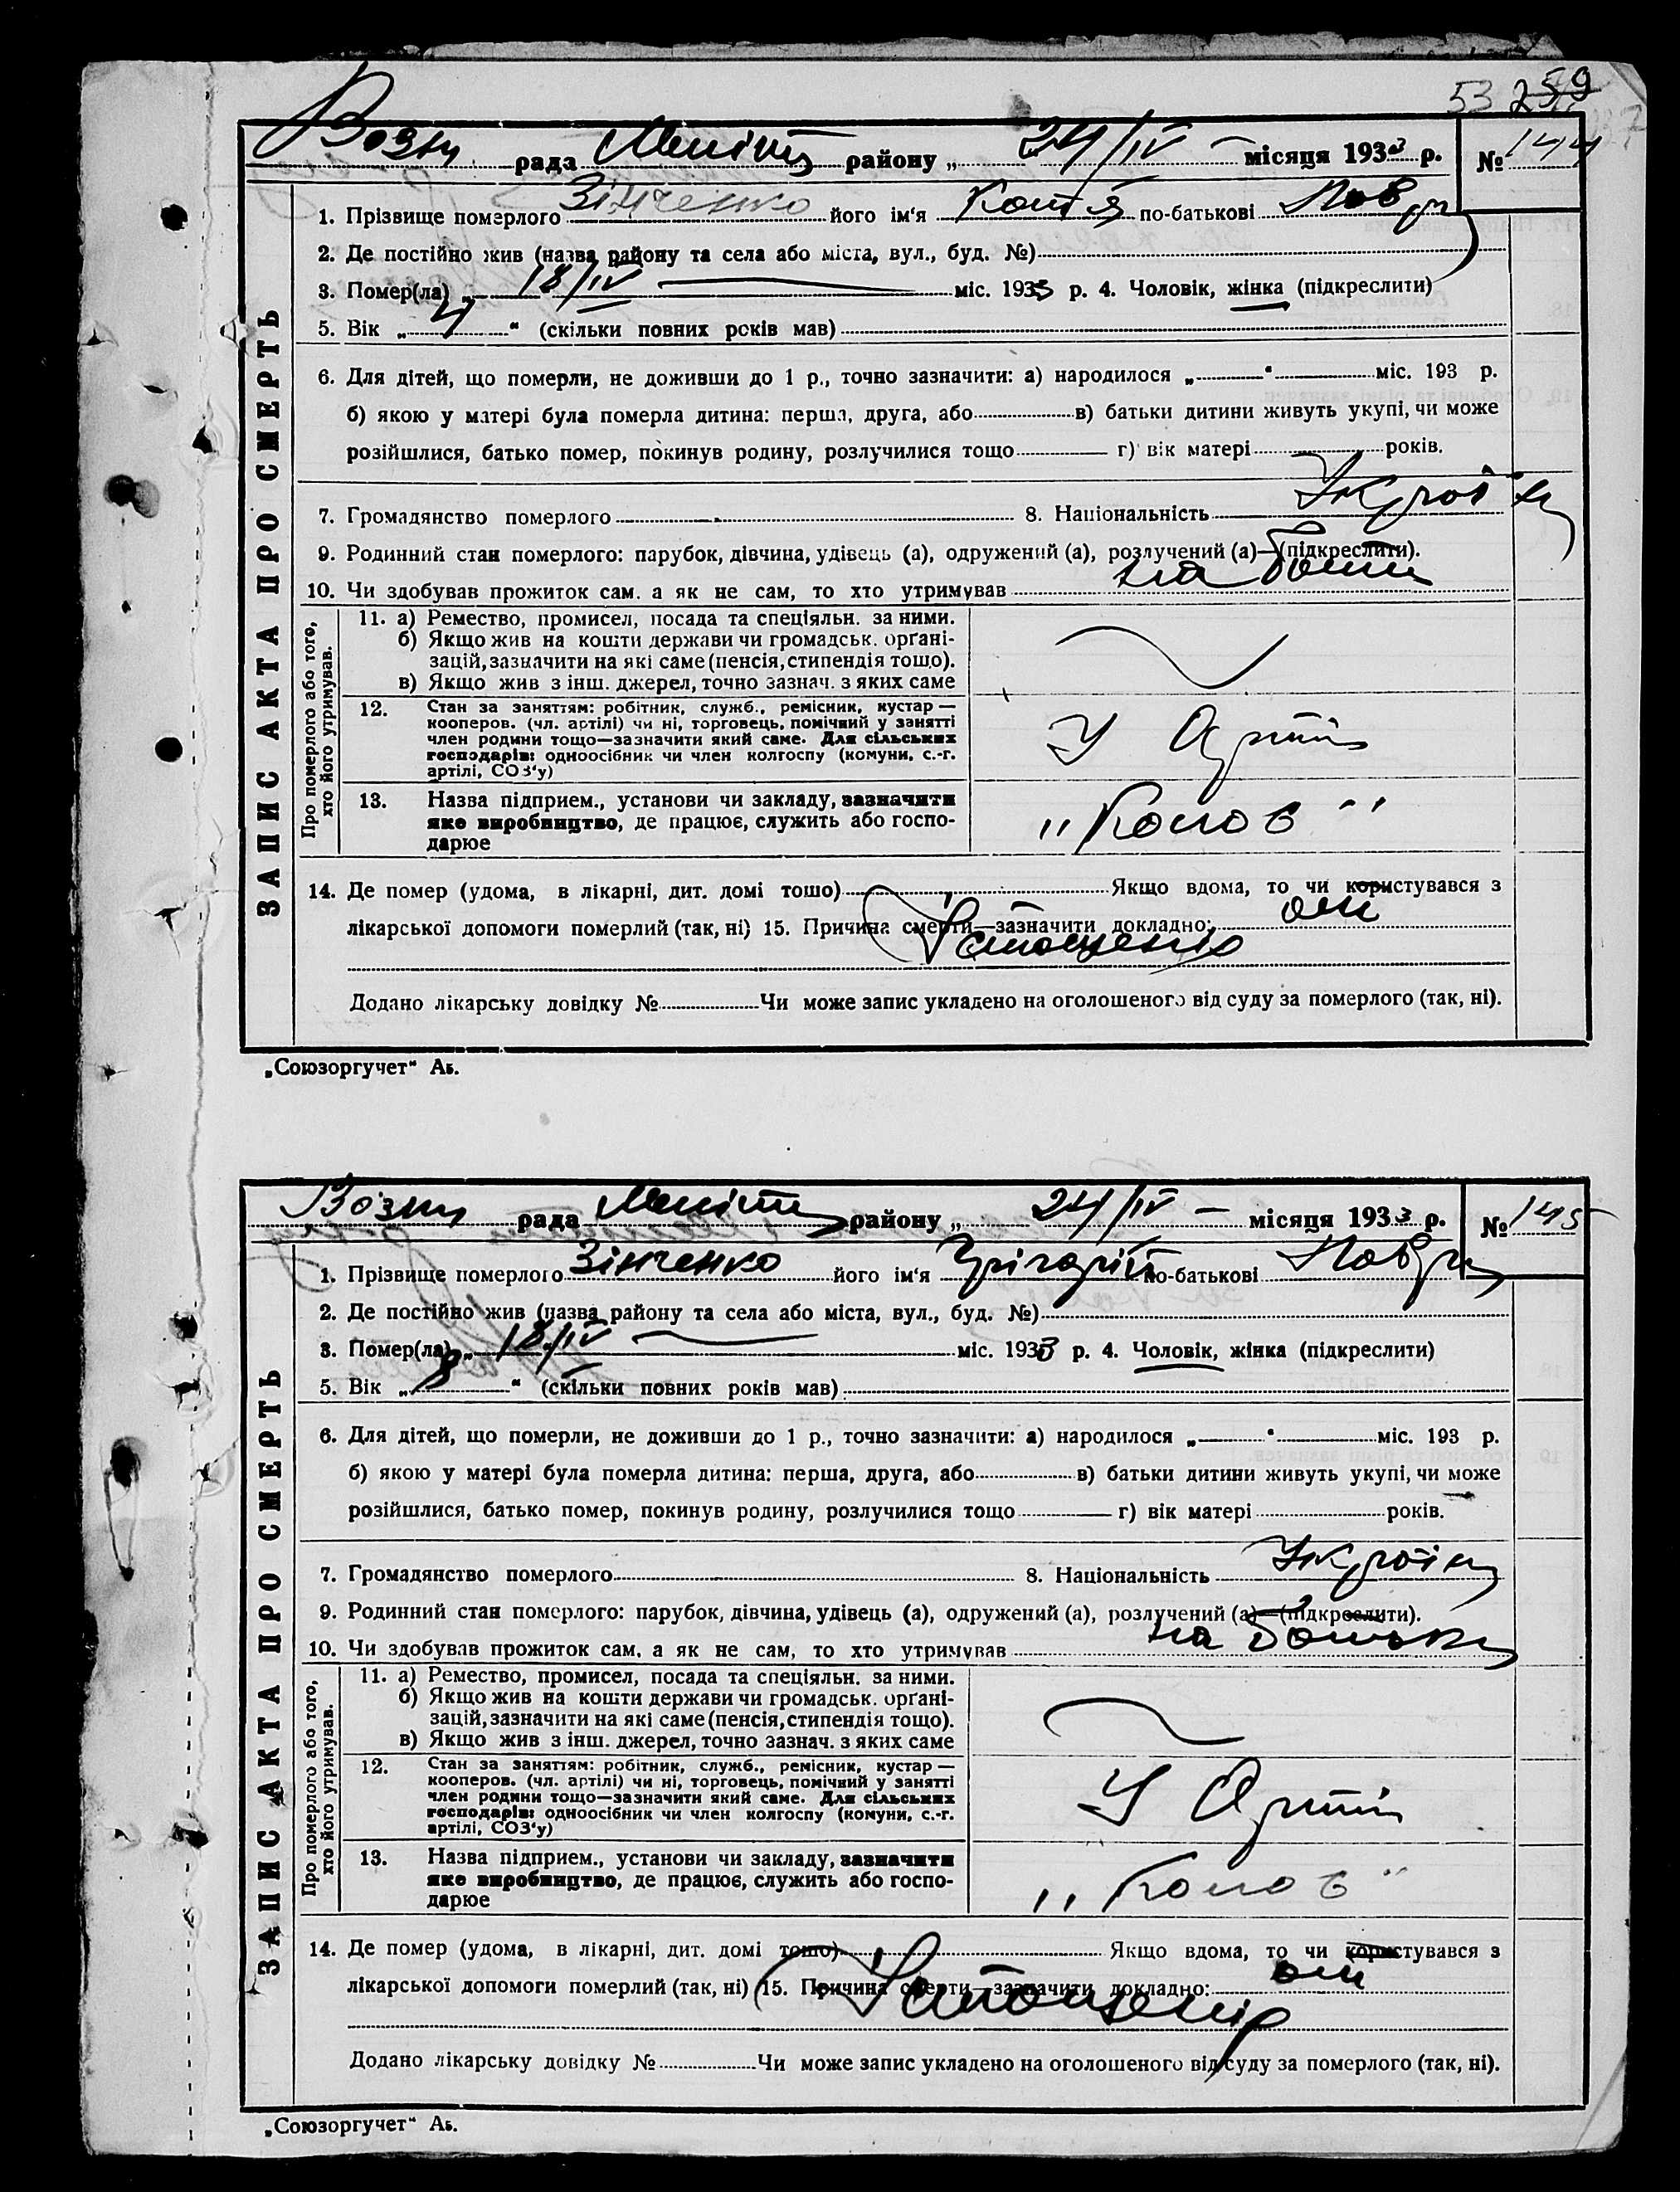 53 259
Возн рада Меніт району „ 24/IV – місяця 1933 р. № 144
1. Прізвище померлого Зінченко його ім'я Котя по-батькові Павл
2. Де постійно жив (назва району та села або міста, вул., буд. №)
3. Помер(ла) „ 18/IV міс. 1933 р. 4. Чоловік, жінка (підкреслити)
5. Вік „ 4 “ (скільки повних років мав)
6. Для дітей, що померли, не доживши до 1 р., точно зазначити: а) народилося „ “ міс. 193 р.
б) якою у матері була померла дитина: перша, друга, або в) батьки дитини живуть укупі, чи може
розійшлися, батько помер, покинув родину, розлучилися тощо г) вік матері років.
7. Громадянство померлого 8. Національність Україн
9. Родинний стан померлого: парубок, дівчина, удівець (а), одружений (а), розлучений (а)—(підкреслити).
10. Чи здобував прожиток сам, а як не сам, то хто утримував на
ЗАПИС АКТА ПРО СМЕРТЬ
Про померлого або того, хто його утримував.
11. а) Ремество, промисел, посада та спеціяльн. за ними.
б) Якщо жив на кошти держави чи громадськ. орґані-
зацій, зазначити на які саме (пенсія, стипендія тощо).
в) Якщо жив з інш. джерел, точно зазнач. з яких саме
12. Стан за заняттям: робітник, служб., ремісник, кустар —
кооперов. (чл. артілі) чи ні, торговець, помічний у занятті
член родини тощо—зазначити який саме. Для сільських
господарів: одноосібник чи член колгоспу (комуни, с.-г.
артілі, СОЗ'у)
У Артіл
13. Назва підприєм., установи чи закладу, зазначити
яке виробництво, де працює, служить або госпо-
дарює
14. Де помер (удома, в лікарні, дит. домі тощо) Якщо вдома, то чи користувався з
лікарської допомоги померлий (так, ні) 15. Причина смерти—зазначити докладно:
Додано лікарську довідку № Чи може запис укладено на оголошеного від суду за померлого (так, ні).
„Союзоргучет“ Аб.
Возн рада Меніт району „ 24/IV – місяця 1933 р. № 145
1. Прізвище померлого Зінченко його ім'я Грігорій по-батькові Павл
2. Де постійно жив (назва району та села або міста, вул., буд. №)
3. Помер(ла) „ 18/IV міс. 1933 р. 4. Чоловік, жінка (підкреслити)
5. Вік „ 8 “ (скільки повних років мав)
6. Для дітей, що померли, не доживши до 1 р., точно зазначити: а) народилося „ “ міс. 193 р.
б) якою у матері була померла дитина: перша, друга, або в) батьки дитини живуть укупі, чи може
розійшлися, батько помер, покинув родину, розлучилися тощо г) вік матері років.
7. Громадянство померлого 8. Національність Україн
9. Родинний стан померлого: парубок, дівчина, удівець (а), одружений (а), розлучений (а)—(підкреслити).
10. Чи здобував прожиток сам, а як не сам, то хто утримував на
ЗАПИС АКТА ПРО СМЕРТЬ
Про померлого або того, хто його утримував.
11. а) Ремество, промисел, посада та спеціяльн. за ними.
б) Якщо жив на кошти держави чи громадськ. орґані-
зацій, зазначити на які саме (пенсія, стипендія тощо).
в) Якщо жив з інш. джерел, точно зазнач. з яких саме
12. Стан за заняттям: робітник, служб., ремісник, кустар —
кооперов. (чл. артілі) чи ні, торговець, помічний у занятті
член родини тощо—зазначити який саме. Для сільських
господарів: одноосібник чи член колгоспу (комуни, с.-г.
артілі, СОЗ'у)
У Артіл
13. Назва підприєм., установи чи закладу, зазначити
яке виробництво, де працює, служить або госпо-
дарює
14. Де помер (удома, в лікарні, дит. домі тощо) Якщо вдома, то чи користувався з
лікарської допомоги померлий (так, ні) 15. Причина смерти—зазначити докладно:
Додано лікарську довідку № Чи може запис укладено на оголошеного від суду за померлого (так, ні).
„Союзоргучет“ Аб.